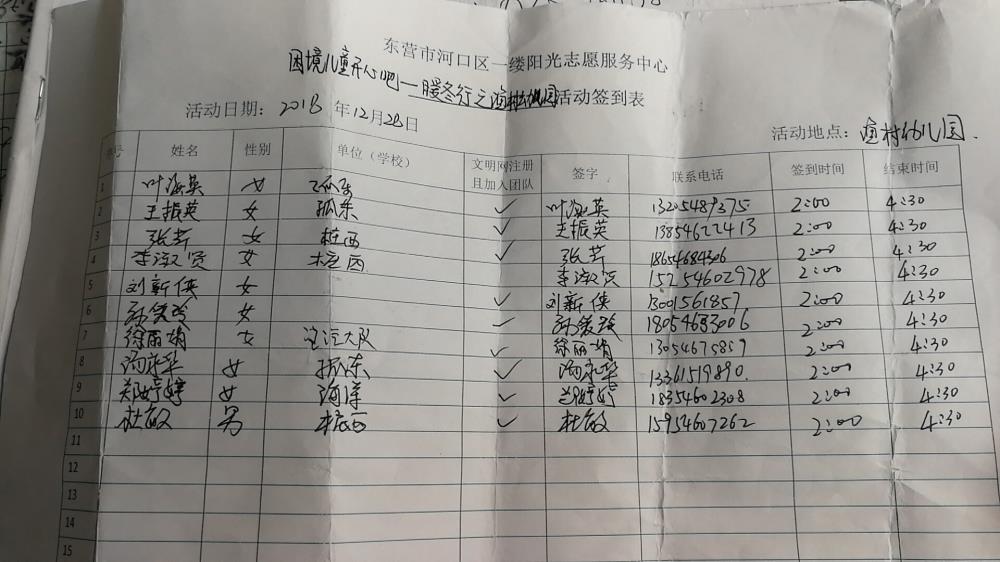 东营市河口区一缕阳光志愿服务中心
困境儿童开心吧—暖冬行之渔村幼儿园活动签到表
活动日期：2018年12月28日 活动地点：渔村幼儿园
序号 姓名 性别 单位（学校） 文明网注册且加入团队 签字 联系电话 签到时间 结束时间
1 叶海英 女 孤东 ✓ 叶海英 13205489375 2:00 4:30
2 王振英 女 孤东 ✓ 王振英 13854622413 2:00 4:30
3 张芹 女 桩西 ✓ 张芹 18654684306 2:00 4:30
4 李淑贤 女 桩西 李淑贤 15254602978 2:00 4:30
5 刘新侠 女 ✓ 刘新侠 13001561857 2:00 4:30
6 女 ✓ 18054683006 2:00 4:30
7 徐丽娟 女 大队 ✓ 徐丽娟 13054675859 2:00 4:30
8 女 孤东 ✓ 13361519890 2:00 4:30
9 郑婷婷 女 海洋 ✓ 郑婷婷 18354602308 2:00 4:30
10 杜敏 男 桩西 ✓ 杜敏 15954607262 2:00 4:30
11
12
13
14
15